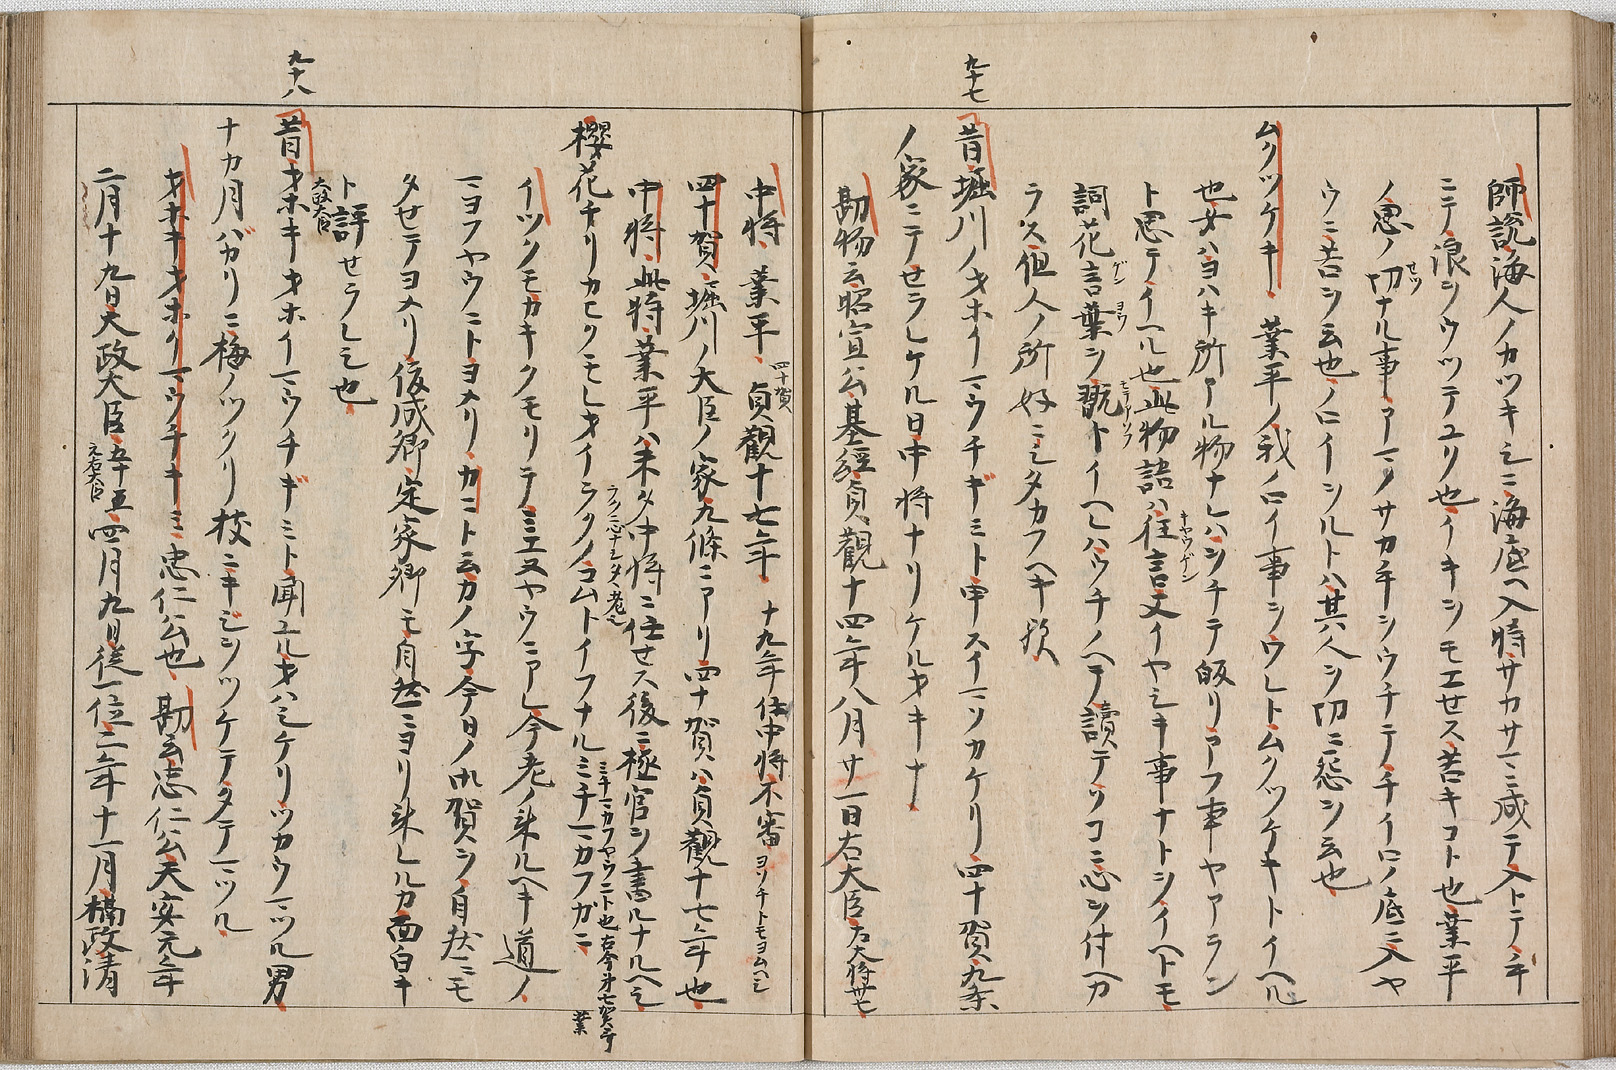 師説海人ノカツキシニ海底ヘ入時サカサマニ成テ入トテ手
ニテ浪ヲウツテユリ也イキヲモエセス苦キコト也業平
ノ思ノ切ナル事アマタサカ手ヲウチテチイロノ底ニ入ヤ
ウニ苦ヲ云也ノロイヲルトハ其人ヲ切ニ怨ヲ云也
ムクツケキ 業平ノ我ノロイ事ヲウレトムクツケキトイヘル
也女ハヨハキ所アル物ナレハヲチテ皈リアフ事ヤアラン
ト思テイヘル也此物語ハ狂言文イヤシキ事ナトヲイヘトモ
詞花言葉ヲ翫トイヘレハウチノヘテ讀テソコニ心ヲ付ヘカ
ラス但人ノ所好ニシタカフヘキ歟
九十七
昔堀川ノオホイマウチギミト申スイマソカケリ四十賀九条
ノ家ニテせラレケル日中将ナリケルオキナ
勘物云昭宣公基經貞觀十四年八月廿一日右大臣左大将卅七
中将 業平 四十賀 貞觀十七年 十九年任中将不審 ヨソチトモヨムヘシ
四十賀 堀川ノ大臣ノ家九條ニアリ四十賀ハ貞觀十七年也
中将 此将業平ハ未タ中将ニ任せス後ニ極官ヲ書ルナルヘシ
櫻花チリカヒクモレオイラクノコムトイフナルミチマカフガニ
イツクモカキクモリテミエヌヤウニアレ今老ノ来ルヘキ道ノ
マヨフヤウニトヨメリカニト云カノ字今日ノ御賀ヲ自然ニモ
タせテヨメリ俊成卿定家卿モ自然ニヨリ来レルカ面白キ
ト評せラレシ也
九十八
昔オホキオホイマウチギミト聞ユルオハシケリツカウマツル男
ナカ月バガリニ梅ノツクリ枝ニキジヲツケテタテマツル
オホキオホイマウチキミ 忠仁公也 勘云忠仁公天安元年
二月十九日大政大臣五十五四月九日従一位二年十一月攝政清